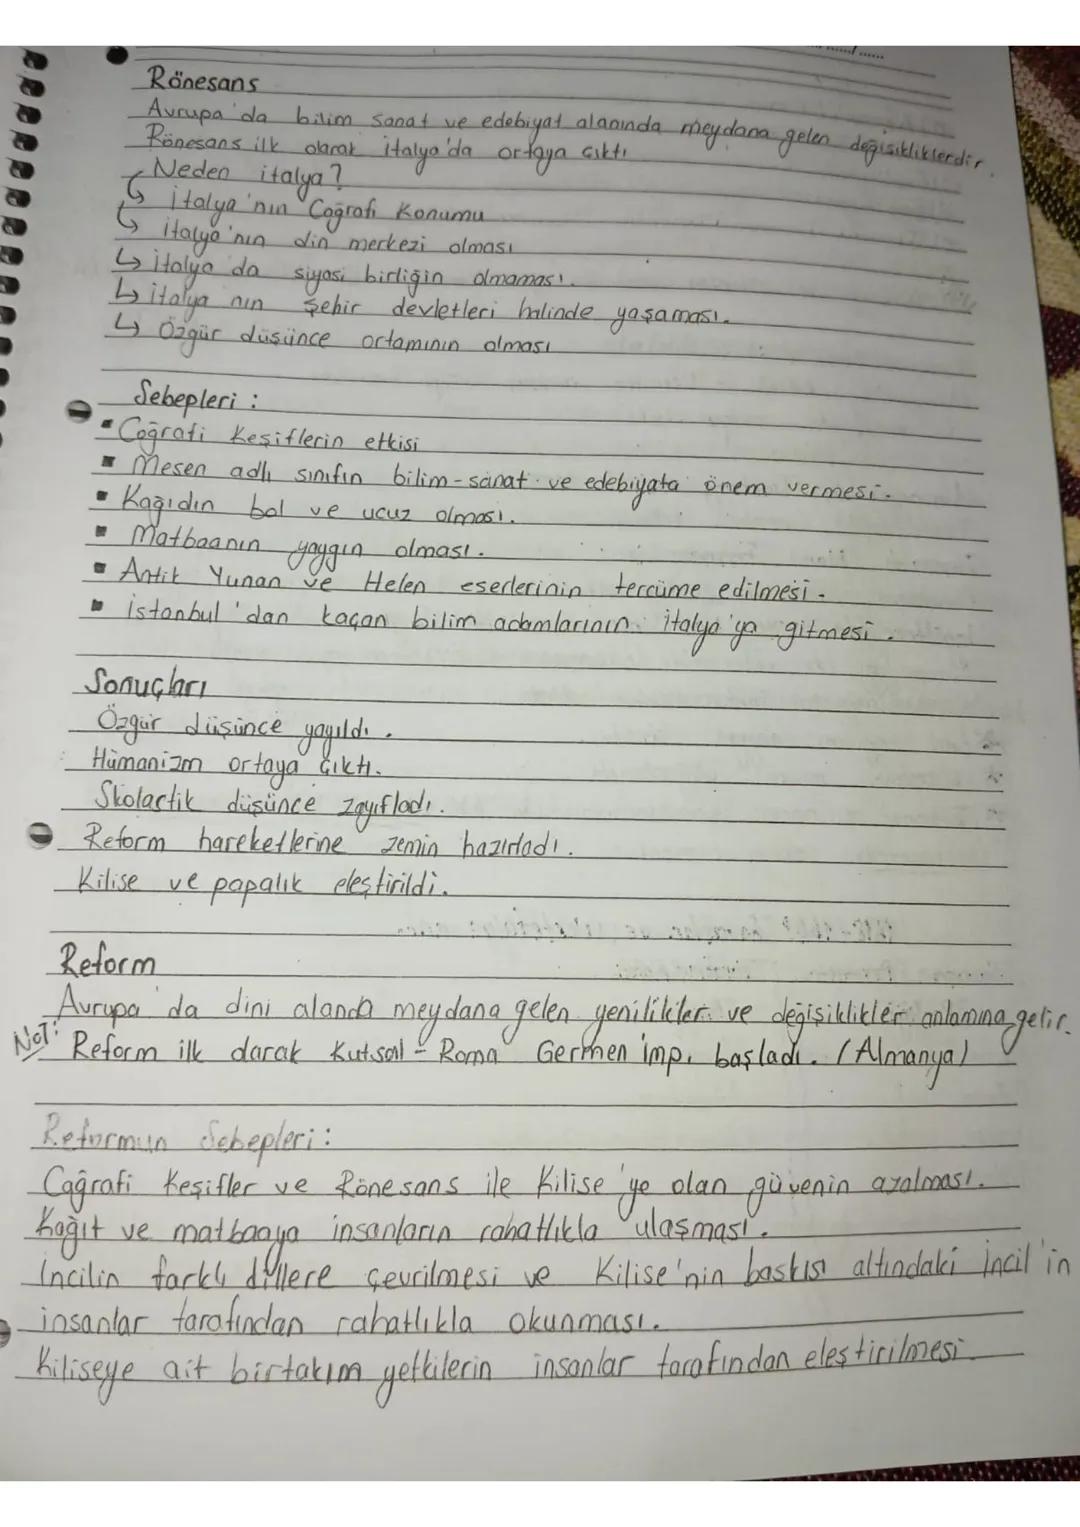 Rönesans
Avrupa'da bilim sanat ve edebiyat alanında meydana gelen değişikliklerdir.
Rönesans ilk olarak İtalya'da ortaya çıktı
Neden italya?
↳ İtalya'nın Coğrafi Konumu
↳ İtalya'nın din merkezi olması
↳ İtalya'da siyasi birliğin olmaması.
↳ italya'nın Şehir devletleri halinde yaşaması.
↳ Özgür düşünce ortamının olması
Sebepleri:
▪ Coğrafi Keşiflerin etkisi
▪ Mesen adlı sınıfın bilim-sanat ve edebiyata önem vermesi.
▪ Kağıdın bol ve ucuz olması.
▪ Matbaanın yaygın olması.
▪ Antik Yunan ve Helen eserlerinin tercüme edilmesi.
▪ istanbul'dan kaçan bilim adamlarının italya'ya gitmesi.
Sonuçları
Özgür düşünce yayıldı.
Hümanizm ortaya çıktı.
Skolastik düşünce zayıfladı.
Reform hareketlerine zemin hazırladı.
Kilise ve papalık eleştirildi.
Reform
Avrupa'da dini alanda meydana gelen yenilikler ve değişiklikler anlamına gelir.
Not: Reform ilk olarak Kutsal-Roma Germen imp. başladı. (Almanya)
Reformun Sebepleri:
Coğrafi Keşifler ve Rönesans ile Kilise'ye olan güvenin azalması.
Kağıt ve matbaaya insanların rahatlıkla ulaşması.
İncilin farklı dillere çevrilmesi ve Kilise'nin baskısı altındaki İncil'in
insanlar tarafından rahatlıkla okunması.
Kiliseye ait birtakım yetkilerin insanlar tarafından eleştirilmesi